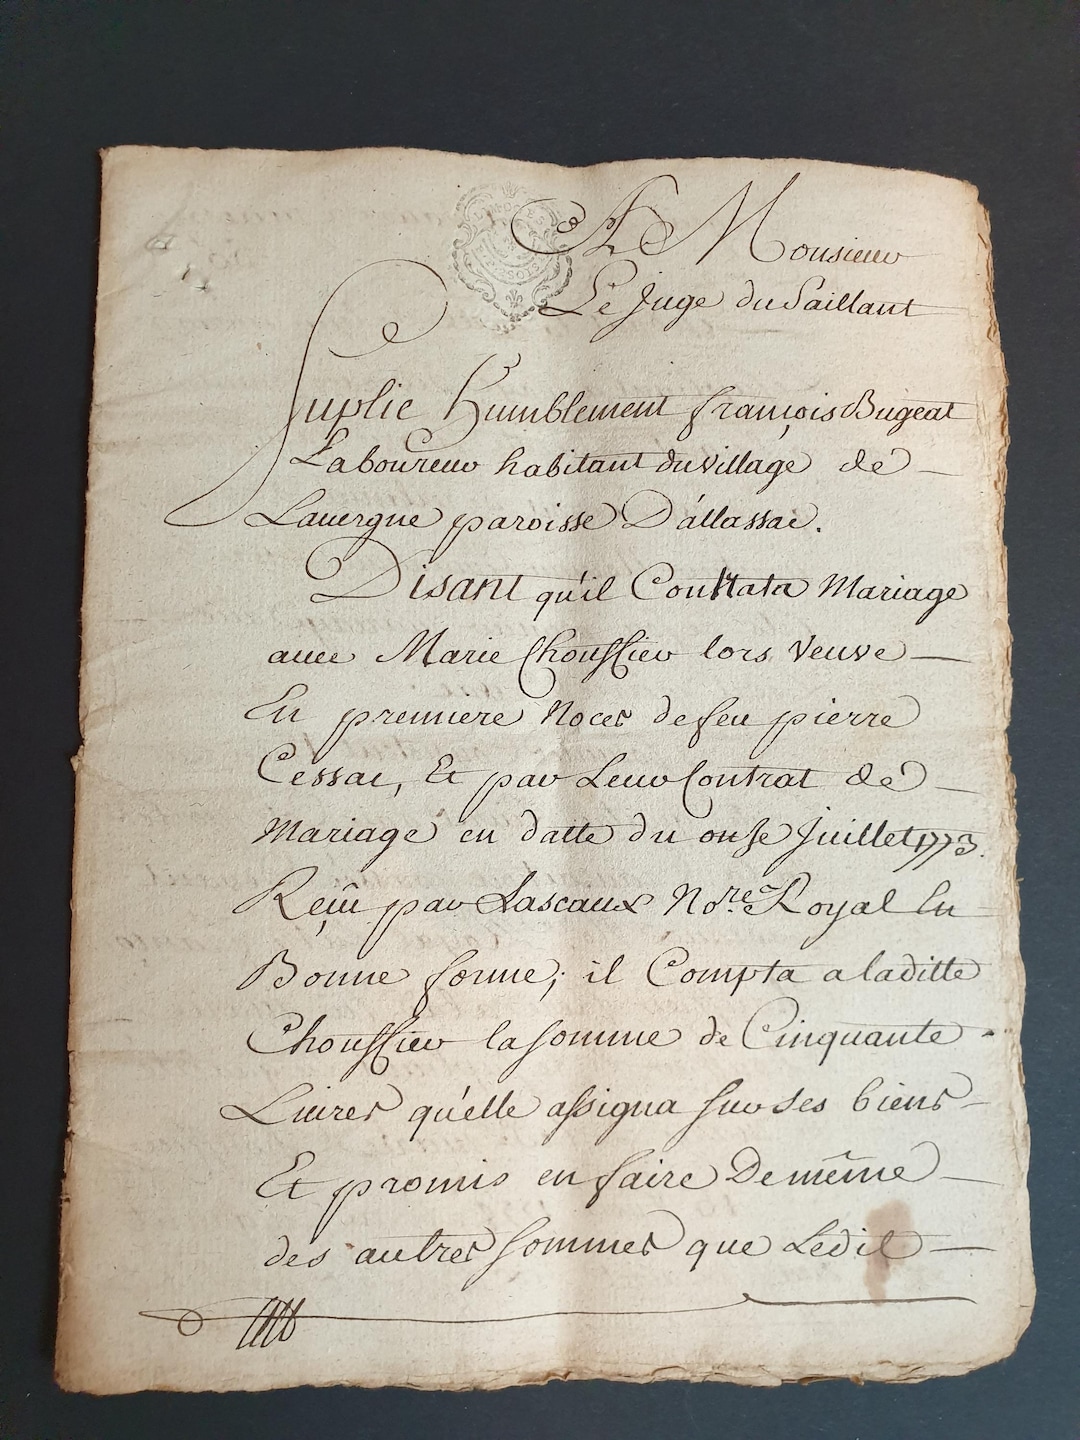 A Monsieur
Le Juge du Saillant
Suplie humblement françois Bugeat
Laboureur habitant du village de
Lavergne paroisse D'allassac.
Disant qu'il Contrata Mariage
avec Marie Chouffier lors veuve
En premiere Noces de feu pierre
Cessac, Et par Leur Contrat de
Mariage en datte du onse Juillet 1773.
Reçû par Lascaux No.re Royal En
Bonne forme; il Compta a laditte
Chouffier la somme de Cinquante
Livres qu'elle assigna sur ses biens
Et promis en faire De même
des autres sommes que Ledit